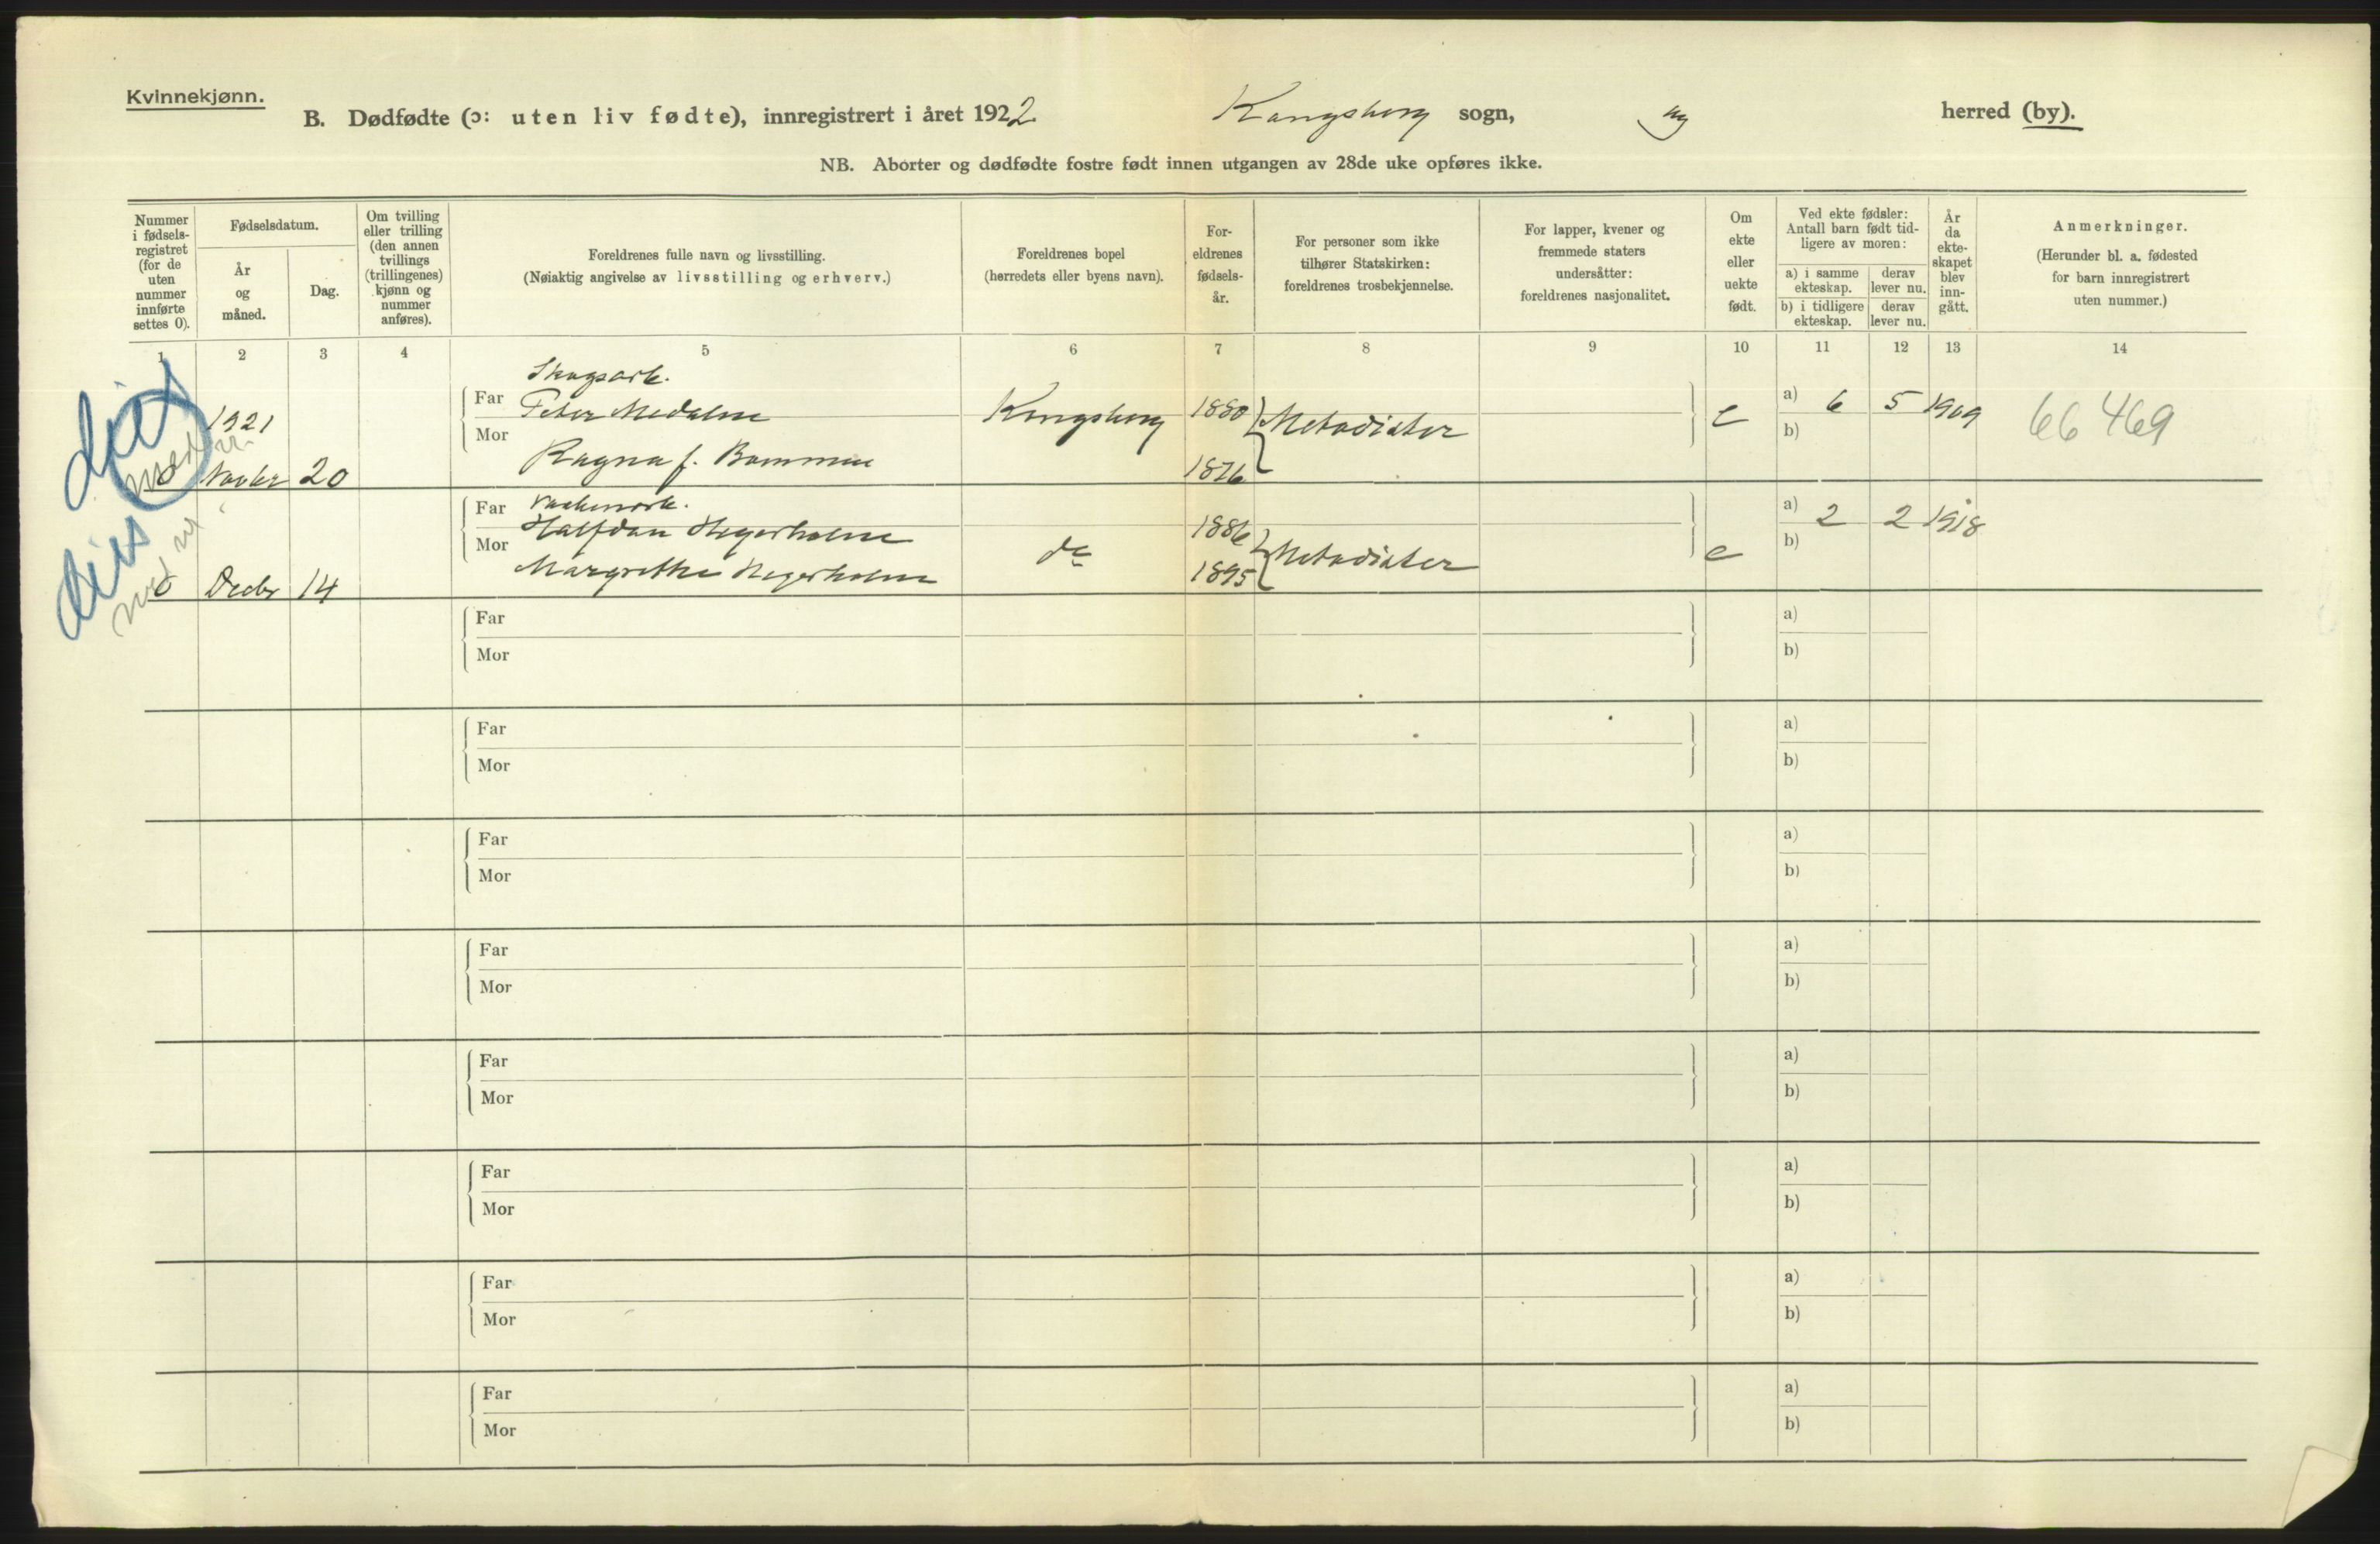 Kvinnekjønn.
B. Dødfødte (ɔ: uten liv fødte), innregistrert i året 1922. Kongsberg sogn, herred (by).
NB. Aborter og dødfødte fostre født innen utgangen av 28de uke opføres ikke.
Nummer i fødsels-registret (for de uten nummer innførte settes 0).
Fødselsdatum.
År og måned.
Dag.
Om tvilling eller trilling (den annen tvillings (trillingenes) kjønn og nummer anføres).
Foreldrenes fulle navn og livsstilling.
(Nøiaktig angivelse av livsstilling og erhverv.)
Foreldrenes bopel
(herredets eller byens navn).
For-eldrenes fødsels-år.
For personer som ikke tilhører Statskirken: foreldrenes trosbekjennelse.
For lapper, kvener og fremmede staters undersåtter: foreldrenes nasjonalitet.
Om ekte eller uekte født.
Ved ekte fødsler: Antall barn født tid-ligere av moren:
a) i samme ekteskap.
derav lever nu.
b) i tidligere ekteskap.
derav lever nu.
År da ekte-skapet blev inn-gått.
Anmerkninger.
(Herunder bl. a. fødested for barn innregistrert uten nummer.)
1 2 3 4 5 6 7 8 9 10 11 12 13 14
Skogsarb.
Far Peter Medalen Kongsberg 1880 Metodister e a) 6 5 1909 66 469
1921
Mor b)
Ragna f. Bommen 1876
0 Novbr 20
Far
Halfdan Hegerholm 1886 a) 2 2 1918
Mor do Metodister e b)
Margrethe Hegerholm 1895
0 Decbr 14
Far a)
Mor b)
Far a)
Mor b)
Far a)
Mor b)
Far a)
Mor b)
Far a)
Mor b)
Far a)
Mor b)
Far a)
Mor b)
Far a)
Mor b)